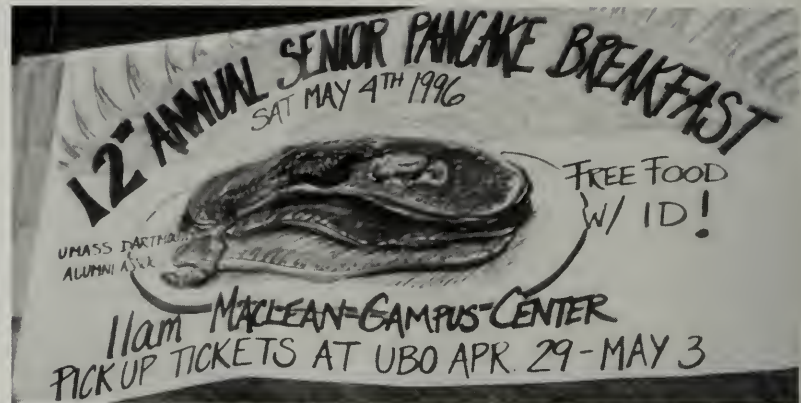 12TH ANNUAL SENIOR PANCAKE BREAKFAST
SAT MAY 4TH 1996
FREE FOOD
W/ ID!
UMASS DARTMOUTH
ALUMNI
11am MACLEAN CAMPUS CENTER
PICK UP TICKETS AT UBO APR. 29 - MAY 3